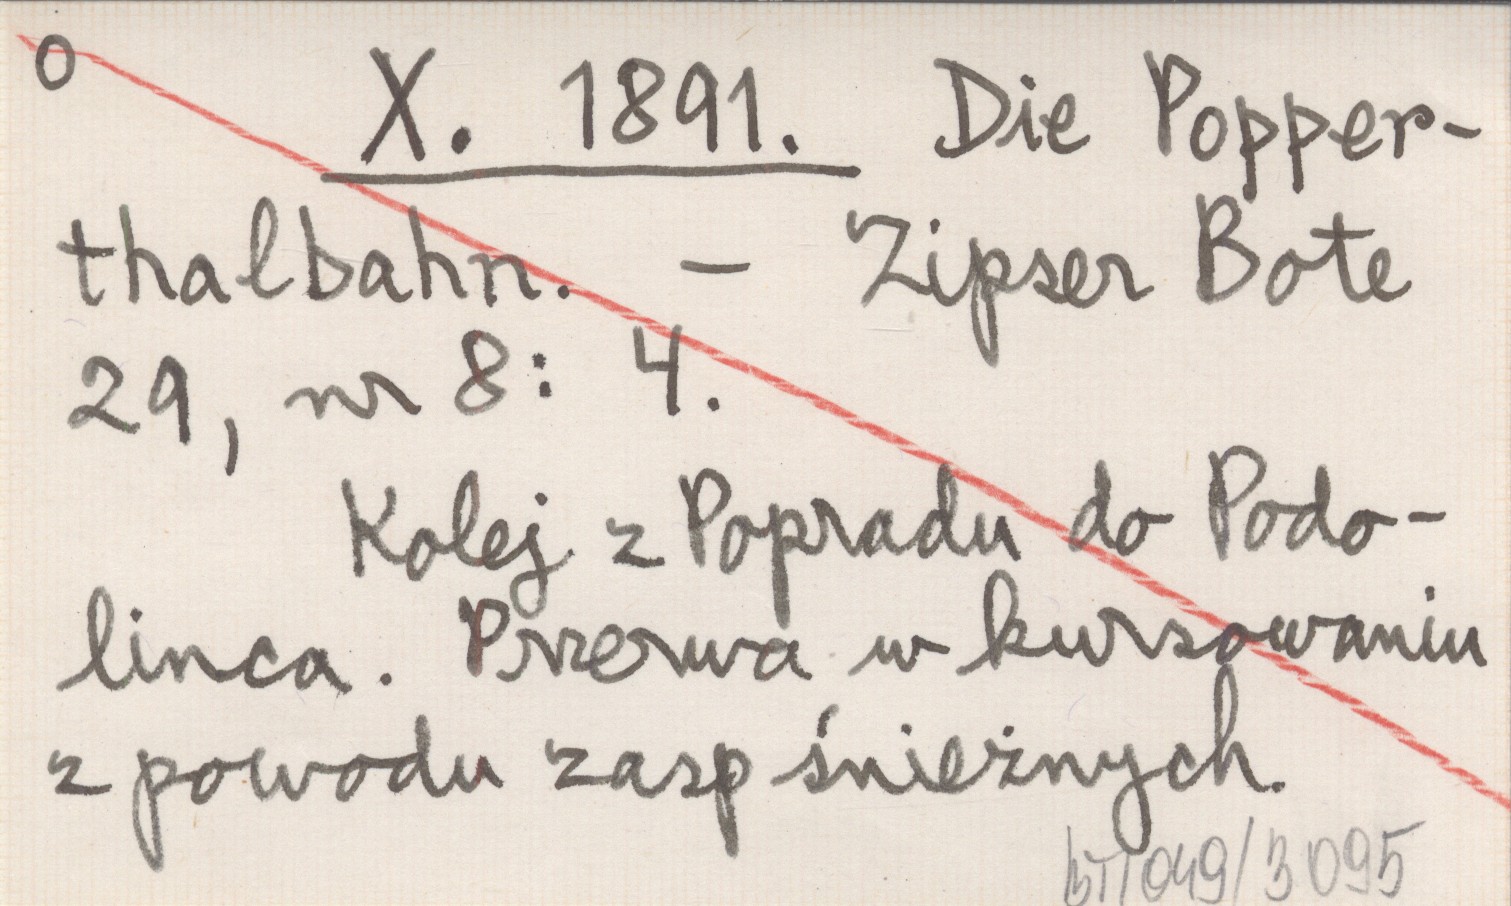 o X. 1891. Die Popper-
thalbahn. – Zipser Bote
29, nr 8: 4.
Kolej z Popradu do Podo-
linca. Przerwa w kursowaniu
z powodu zasp śnieżnych.
bT/049/3095